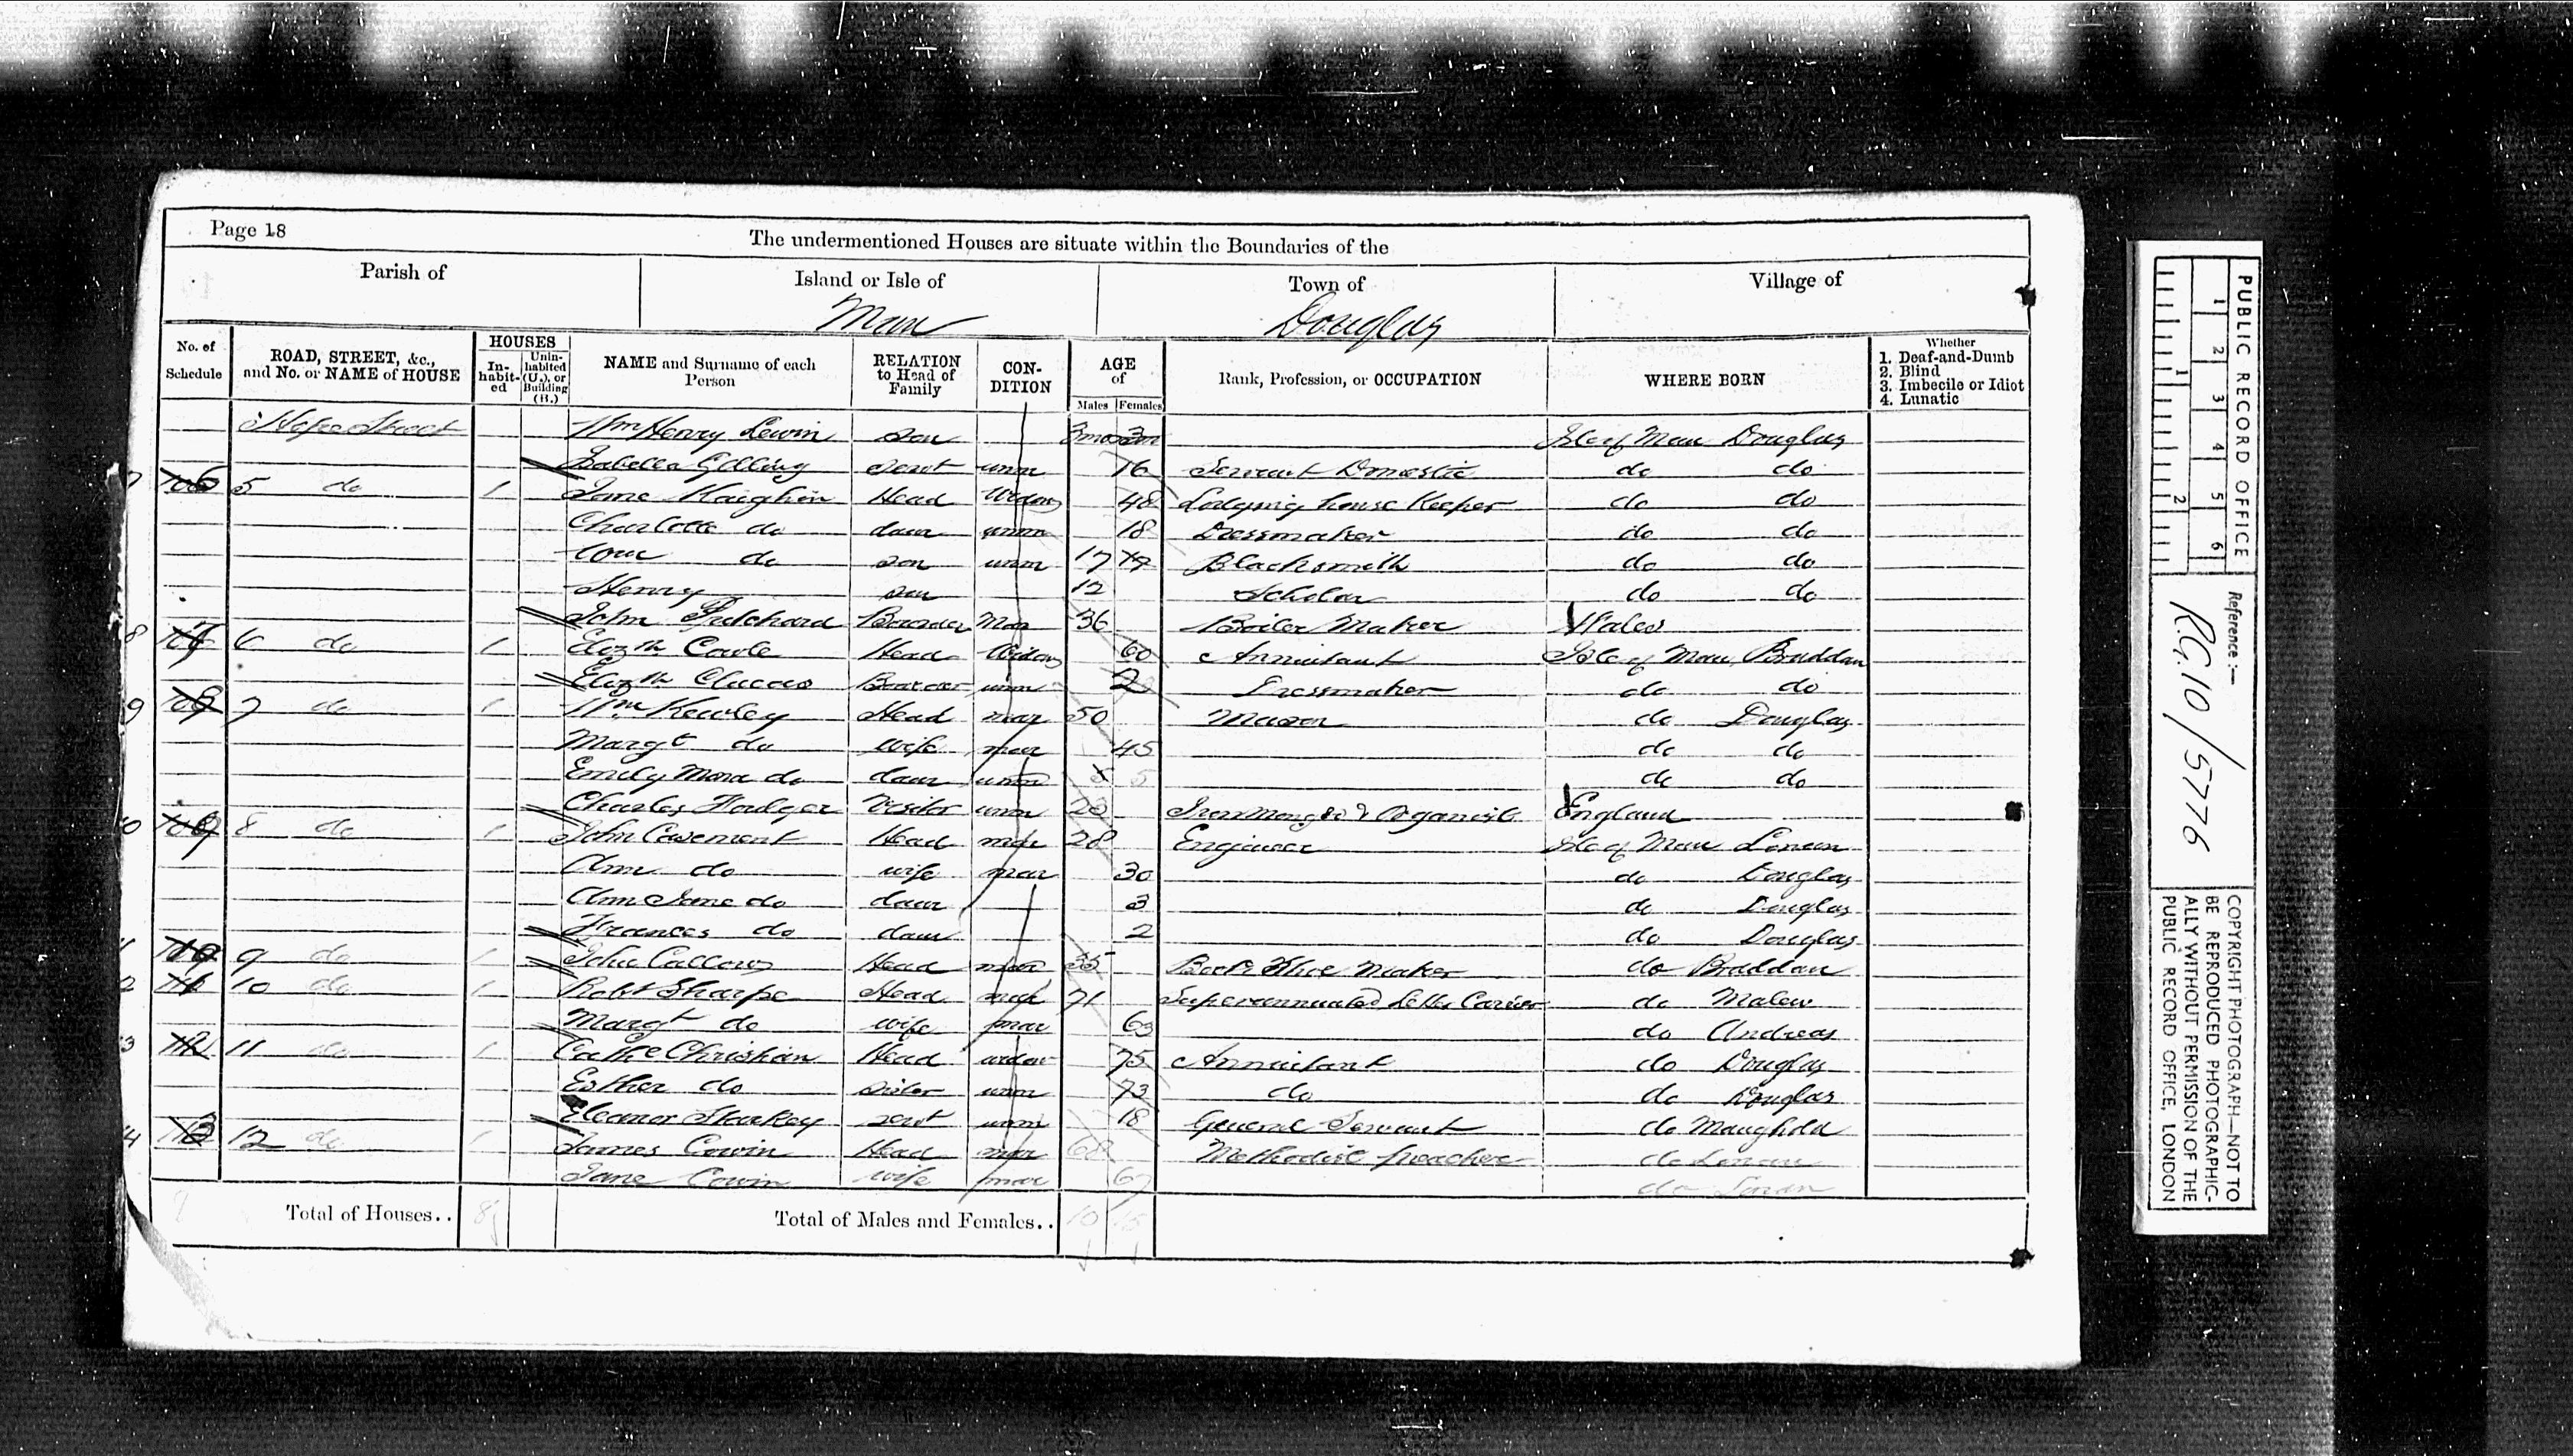 Page 18
The undermentioned Houses are situate within the Boundaries of the
Parish of Island or Isle of Town of Village of
Man Douglas
No. of Schedule ROAD, STREET, &c., and No. or NAME of HOUSE HOUSES In-habit-ed Unin-habited (U.), or Building (B.) NAME and Surname of each Person RELATION to Head of Family CON-DITION AGE of Males Females Rank, Profession, or OCCUPATION WHERE BORN Whether 1. Deaf-and-Dumb 2. Blind 3. Imbecile or Idiot 4. Lunatic
Hope Street Wm Henry Lewin son 3mo Isle of Man Douglas
Isabella Gelling servt unm 16 Servant Domestic do do
5 do 1 Jane Kaighin Head Widow 48 Lodging house Keeper do do
Charlotte do daur unm 18 Dressmaker do do
do son unm 17 Blacksmith do do
Henry son 12 Scholar do do
John Pritchard Boarder Mar 36 Boiler Maker Wales
6 do 1 Elizth Cowle Head Widow 60 Annuitant Isle of Man Braddan
Elizth Clucas Boarder unm Dressmaker do do
7 do 1 Wm Kewley Head mar 50 Mason do Douglas
Margt do wife mar 45 do do
Emily Mona do daur unm 5 do do
Charles Visitor unm 20 Iron Monger & Organist England
8 do 1 John Casement Head mar 28 Engineer Isle of Man Lonan
Ann do wife mar 30 do Douglas
Ann Jane do daur 3 do Douglas
Frances do daur 2 do Douglas
9 do 1 John Callow Head mar 35 Boot & Shoe Maker do Braddan
10 do 1 Robt Sharpe Head mar 71 Superannuated Letter Carrier do Malew
Margt do wife mar 63 do Andreas
11 do 1 Cathe Christian Head widow 75 Annuitant do Douglas
Esther do sister unm 73 do do Douglas
Eleanor Starkey servt unm 18 General Servant do Maughold
12 do 1 James Cowin Head mar 68 Methodist preacher do Lonan
Jane Cowin wife mar 67 do Lonan
Total of Houses.. 8 Total of Males and Females.. 10 15
PUBLIC RECORD OFFICE
1 2 3 4 5 6
1 2
Reference:—
R.G.10/5776
COPYRIGHT PHOTOGRAPH—NOT TO
BE REPRODUCED PHOTOGRAPHIC-
ALLY WITHOUT PERMISSION OF THE
PUBLIC RECORD OFFICE, LONDON